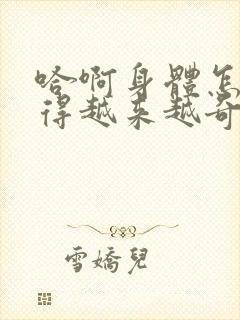 哈啊身體怎
得越来越奇
雪嬌兒